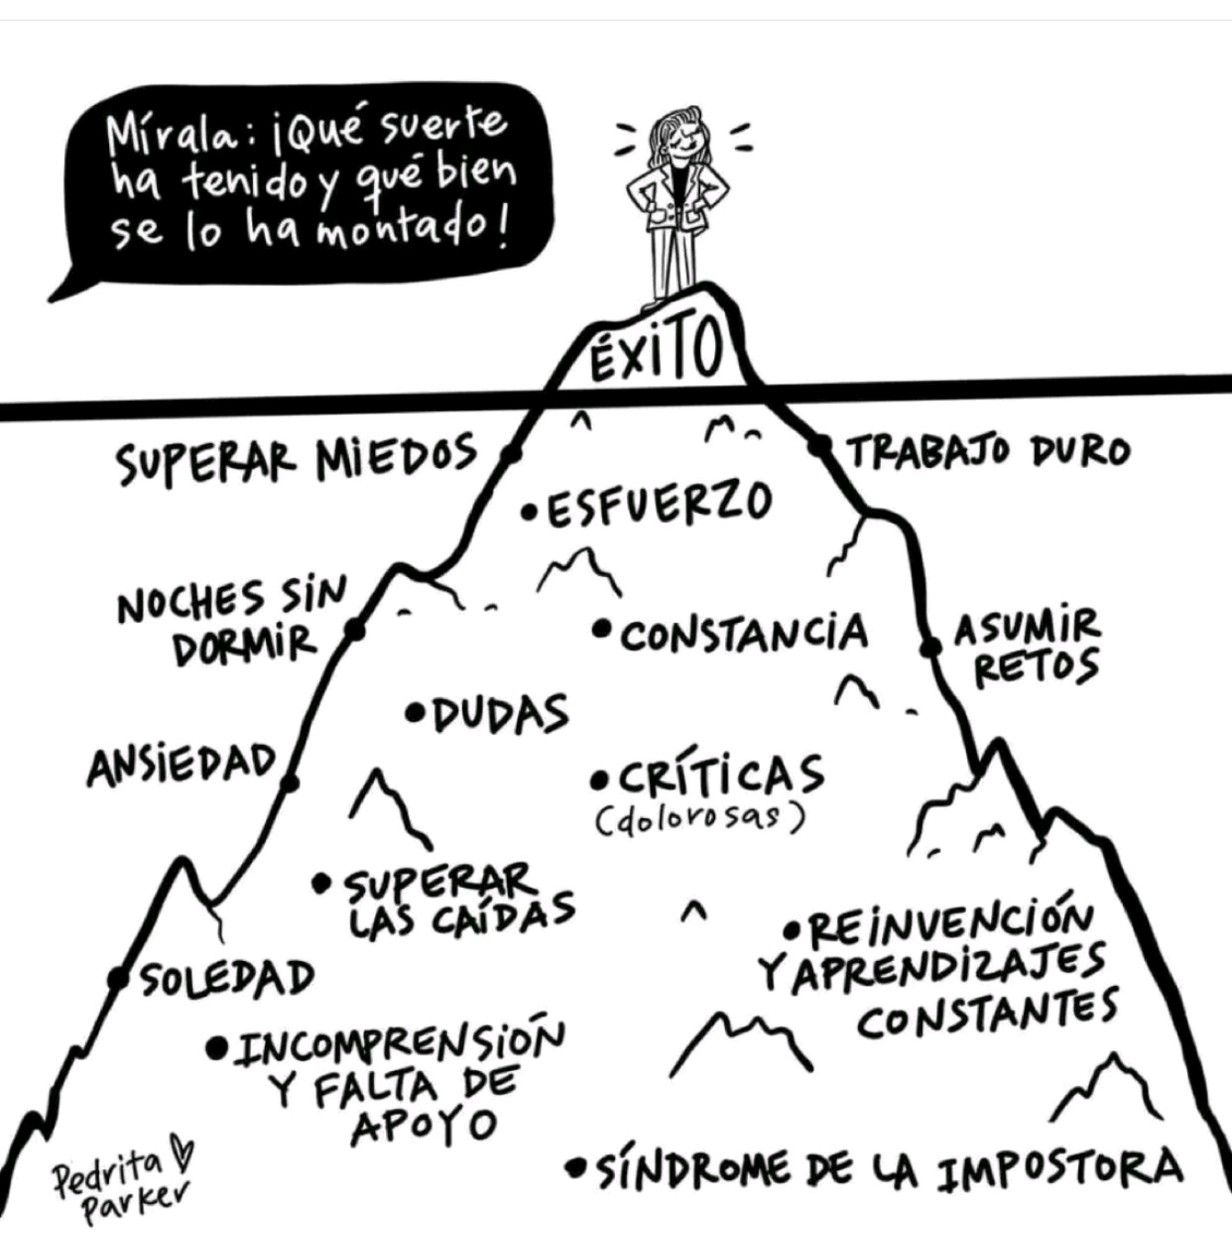 Mírala: ¡Qué suerte
ha tenido y qué bien
se lo ha montado!
ÉXITO
SUPERAR MIEDOS
TRABAJO DURO
•ESFUERZO
NOCHES SIN
DORMIR
•CONSTANCIA
ASUMIR
RETOS
•DUDAS
ANSIEDAD
•CRÍTICAS
(dolorosas)
•SUPERAR
LAS CAÍDAS
•REINVENCIÓN
Y APRENDIZAJES
CONSTANTES
SOLEDAD
•INCOMPRENSIÓN
Y FALTA DE
APOYO
•SÍNDROME DE LA IMPOSTORA
Pedrita
Parker